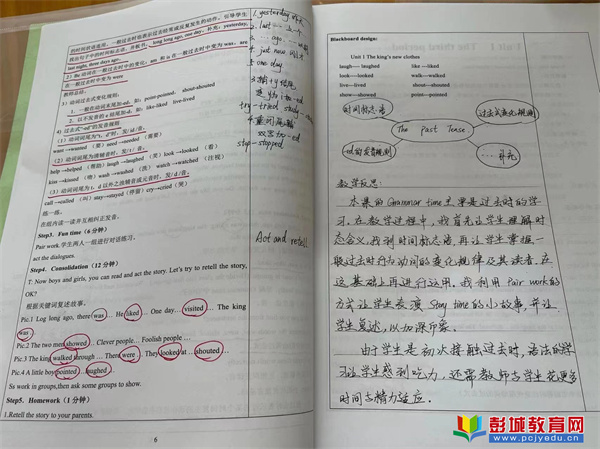 的时间状语连用。一般过去时也表示过去经常或反复发生的动作。引导学生
找出句子中的时间标志语,并板书。long long ago, one day。补充:yesterday,
last night, three days ago…
2)Be 动词在一般过去时中的变化:am 和 is 在一般过去时中变为 was,are
在一般过去时中变为 were
教师总结:
3)动词过去式变化规则:
1. 一般在动词末尾加-ed,如:point-pointed, shout-shouted
2. 以不发音的 e 结尾加-d,如:like-liked live-lived
4)过去式"-ed"的发音规则
(1)动词词尾为"t, d"时,发/id/音,
want →wanted (要) need →needed (需要)
(2)动词词尾为清辅音时,发/t/音。
help →helped (帮助) laugh →laughed (笑) look →looked (看)
kiss →kissed (吻) wash →washed (洗) watch →watched (注视)
(3)动词词尾为 t, d 以外之浊辅音或元音时,发/d/音。
call →called (叫) stay→stayed(停留) cry→cried(哭)
练一练。
在组内读一读并互相纠正发音。
Step3. Fun time (6 分钟)
Pair work.学生两人一组进行对话练习。
act the dialogues.
Step4. Consolidation(12 分钟)
T: Now boys and girls, you can read and act the story. Let's try to retell the story,
OK?
根据关键词复述故事。
Pic.1 Log long ago, there was … He liked … One day… visited … The king
was…
Pic.2 The two men showed… Clever people… Foolish people …
Pic.3 The king walked through … There were … They looked at … shouted…
Pic.4 A little boy pointed…laughed…
Ss work in groups,then ask some groups to show.
Step5. Homework(1 分钟)
1.Retell the story to your parents.
6
1. yesterday
2. last
3. … ago
4. just now
5. one day
try-tried study
stop-stopped
Act and retell
Blackboard design:
Unit 1 The king's new clothes
laugh---- laughed like ---liked
look----looked walk--walked
live---lived shout---shouted
show---showed point---pointed
时间标志语
过去式变化规则
The past Tense
-ed的发音规则
教学反思:
本课的Grammar time主要是过去时的学
习。在教学过程中,我首先让学生理解时
态含义,找到时间标志语,再让学生掌握一
般过去时行为动词的变化规律及其读音。在
这基础上再进行运用。我利用 Pair work的
方式让学生表演 Story time的小故事,并让
学生复述,以加深印象。
由于学生是初次接触过去时,语法的学
习让学生感到吃力,还需教师与学生花更多
时间与精力适应。
彭城教育网
www.pcjyedu.cn